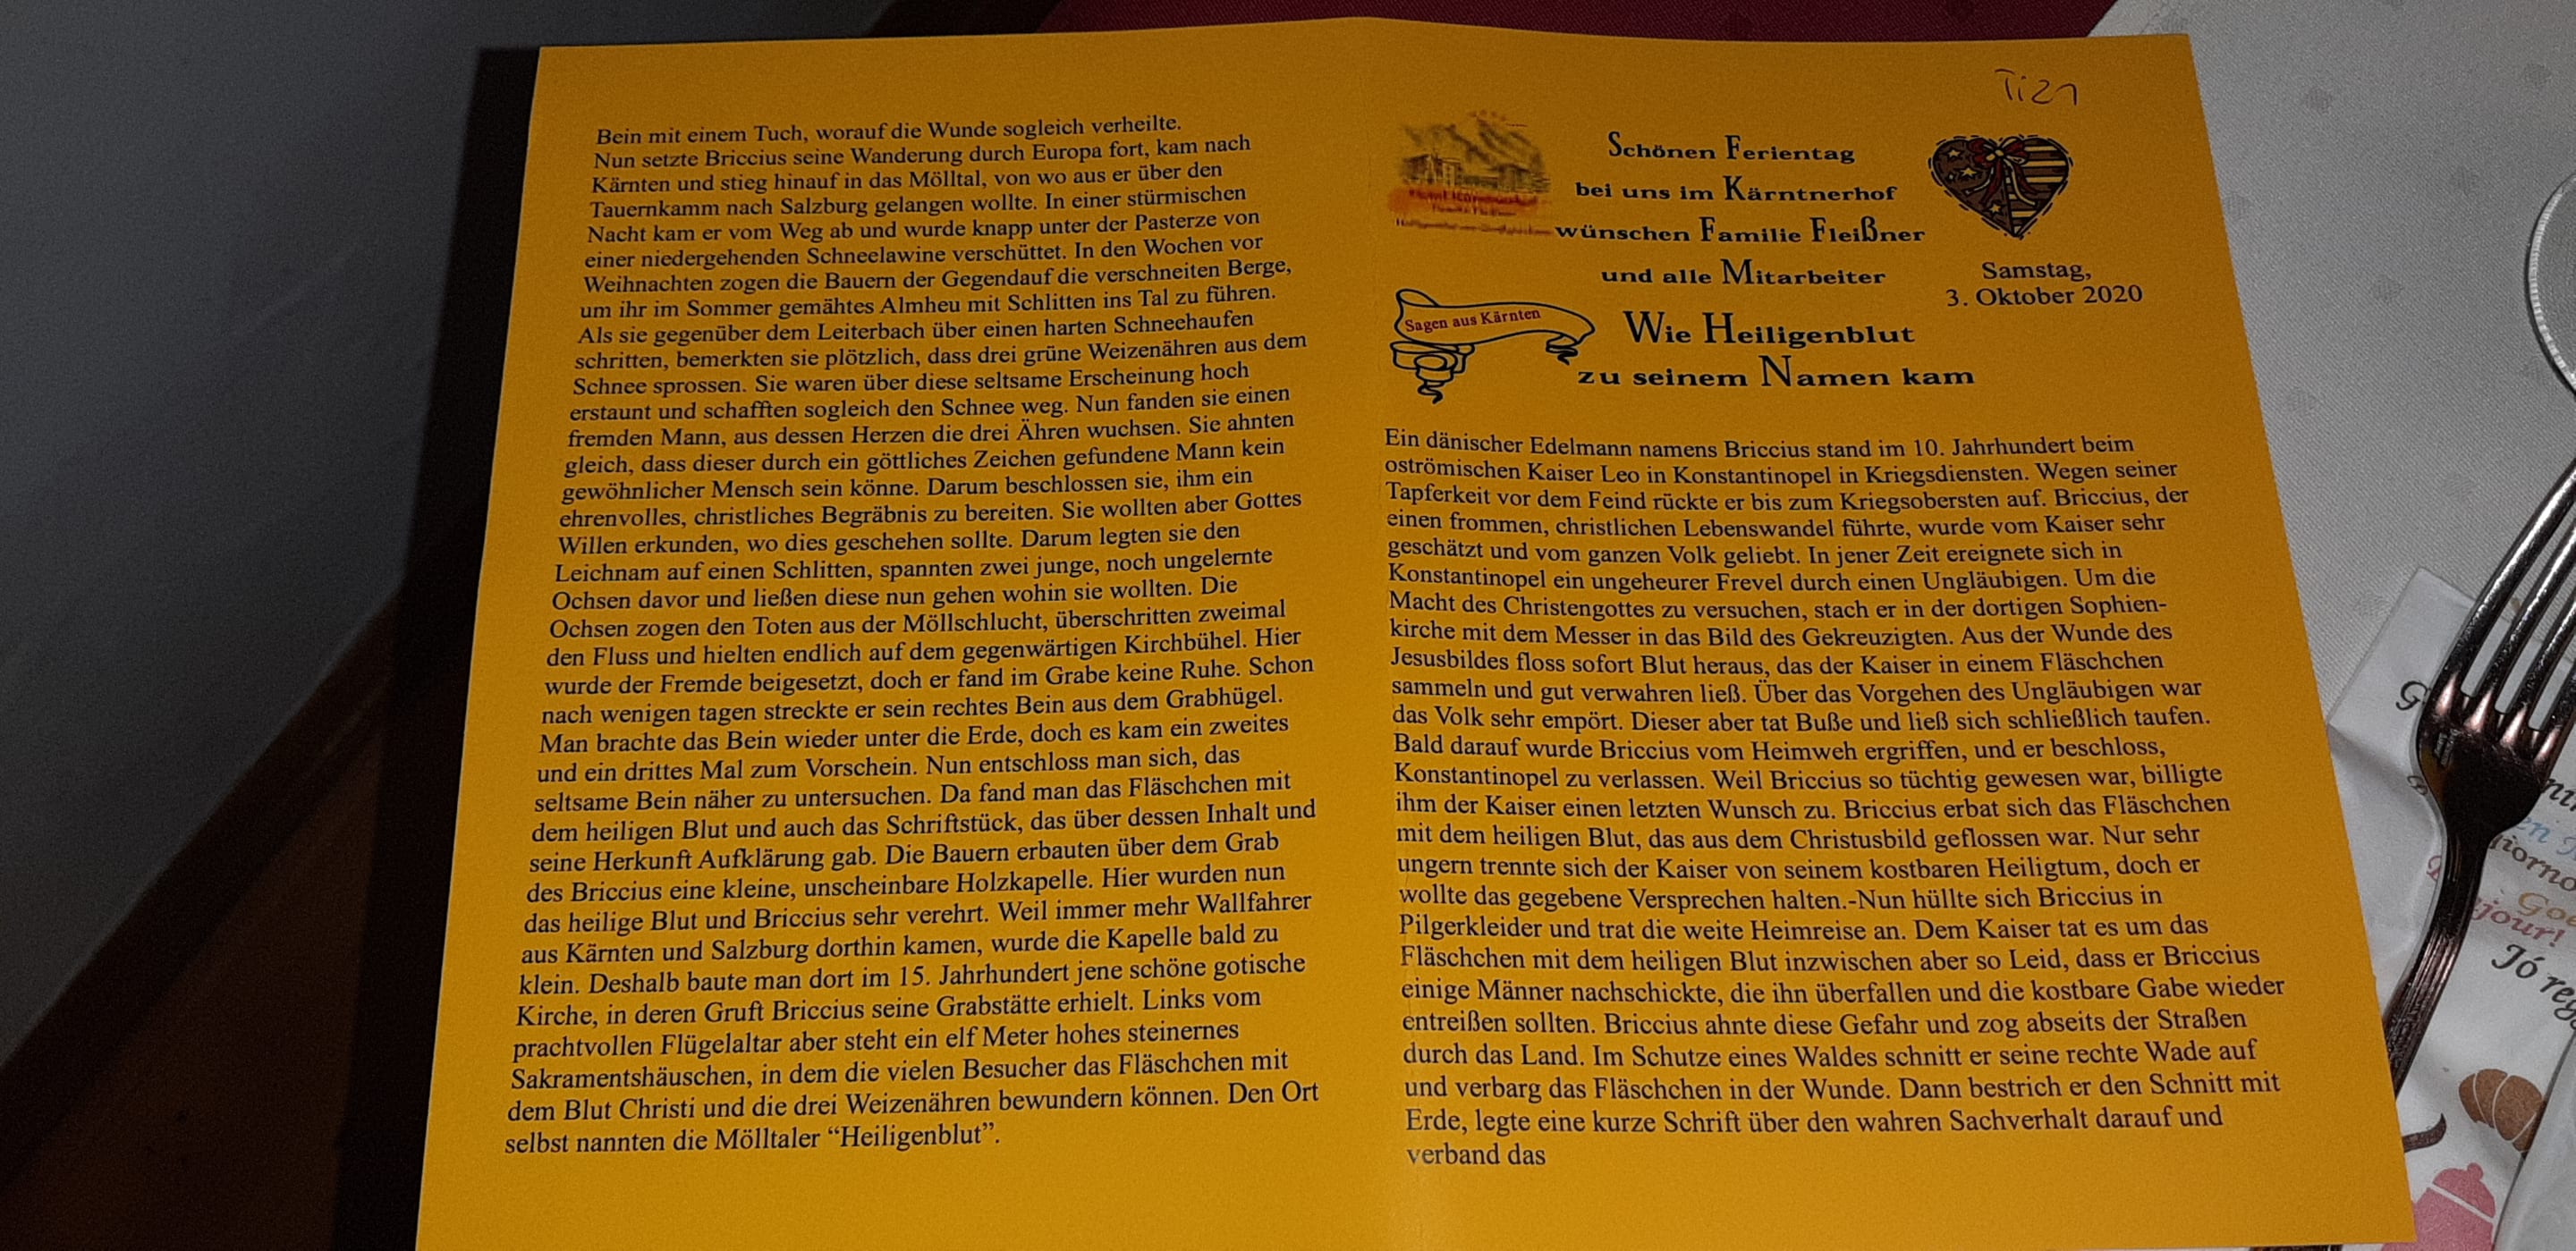 Ti21
Schönen Ferientag
bei uns im Kärntnerhof
wünschen Familie Fleißner
und alle Mitarbeiter
Samstag,
3. Oktober 2020
Sagen aus Kärnten
Wie Heiligenblut
zu seinem Namen kam
Ein dänischer Edelmann namens Briccius stand im 10. Jahrhundert beim
oströmischen Kaiser Leo in Konstantinopel in Kriegsdiensten. Wegen seiner
Tapferkeit vor dem Feind rückte er bis zum Kriegsobersten auf. Briccius, der
einen frommen, christlichen Lebenswandel führte, wurde vom Kaiser sehr
geschätzt und vom ganzen Volk geliebt. In jener Zeit ereignete sich in
Konstantinopel ein ungeheurer Frevel durch einen Ungläubigen. Um die
Macht des Christengottes zu versuchen, stach er in der dortigen Sophien-
kirche mit dem Messer in das Bild des Gekreuzigten. Aus der Wunde des
Jesusbildes floss sofort Blut heraus, das der Kaiser in einem Fläschchen
sammeln und gut verwahren ließ. Über das Vorgehen des Ungläubigen war
das Volk sehr empört. Dieser aber tat Buße und ließ sich schließlich taufen.
Bald darauf wurde Briccius vom Heimweh ergriffen, und er beschloss,
Konstantinopel zu verlassen. Weil Briccius so tüchtig gewesen war, billigte
ihm der Kaiser einen letzten Wunsch zu. Briccius erbat sich das Fläschchen
mit dem heiligen Blut, das aus dem Christusbild geflossen war. Nur sehr
ungern trennte sich der Kaiser von seinem kostbaren Heiligtum, doch er
wollte das gegebene Versprechen halten.-Nun hüllte sich Briccius in
Pilgerkleider und trat die weite Heimreise an. Dem Kaiser tat es um das
Fläschchen mit dem heiligen Blut inzwischen aber so Leid, dass er Briccius
einige Männer nachschickte, die ihn überfallen und die kostbare Gabe wieder
entreißen sollten. Briccius ahnte diese Gefahr und zog abseits der Straßen
durch das Land. Im Schutze eines Waldes schnitt er seine rechte Wade auf
und verbarg das Fläschchen in der Wunde. Dann bestrich er den Schnitt mit
Erde, legte eine kurze Schrift über den wahren Sachverhalt darauf und
verband das
Bein mit einem Tuch, worauf die Wunde sogleich verheilte.
Nun setzte Briccius seine Wanderung durch Europa fort, kam nach
Kärnten und stieg hinauf in das Mölltal, von wo aus er über den
Tauernkamm nach Salzburg gelangen wollte. In einer stürmischen
Nacht kam er vom Weg ab und wurde knapp unter der Pasterze von
einer niedergehenden Schneelawine verschüttet. In den Wochen vor
Weihnachten zogen die Bauern der Gegendauf die verschneiten Berge,
um ihr im Sommer gemähtes Almheu mit Schlitten ins Tal zu führen.
Als sie gegenüber dem Leiterbach über einen harten Schneehaufen
schritten, bemerkten sie plötzlich, dass drei grüne Weizenähren aus dem
Schnee sprossen. Sie waren über diese seltsame Erscheinung hoch
erstaunt und schafften sogleich den Schnee weg. Nun fanden sie einen
fremden Mann, aus dessen Herzen die drei Ähren wuchsen. Sie ahnten
gleich, dass dieser durch ein göttliches Zeichen gefundene Mann kein
gewöhnlicher Mensch sein könne. Darum beschlossen sie, ihm ein
ehrenvolles, christliches Begräbnis zu bereiten. Sie wollten aber Gottes
Willen erkunden, wo dies geschehen sollte. Darum legten sie den
Leichnam auf einen Schlitten, spannten zwei junge, noch ungelernte
Ochsen davor und ließen diese nun gehen wohin sie wollten. Die
Ochsen zogen den Toten aus der Möllschlucht, überschritten zweimal
den Fluss und hielten endlich auf dem gegenwärtigen Kirchbühel. Hier
wurde der Fremde beigesetzt, doch er fand im Grabe keine Ruhe. Schon
nach wenigen tagen streckte er sein rechtes Bein aus dem Grabhügel.
Man brachte das Bein wieder unter die Erde, doch es kam ein zweites
und ein drittes Mal zum Vorschein. Nun entschloss man sich, das
seltsame Bein näher zu untersuchen. Da fand man das Fläschchen mit
dem heiligen Blut und auch das Schriftstück, das über dessen Inhalt und
seine Herkunft Aufklärung gab. Die Bauern erbauten über dem Grab
des Briccius eine kleine, unscheinbare Holzkapelle. Hier wurden nun
das heilige Blut und Briccius sehr verehrt. Weil immer mehr Wallfahrer
aus Kärnten und Salzburg dorthin kamen, wurde die Kapelle bald zu
klein. Deshalb baute man dort im 15. Jahrhundert jene schöne gotische
Kirche, in deren Gruft Briccius seine Grabstätte erhielt. Links vom
prachtvollen Flügelaltar aber steht ein elf Meter hohes steinernes
Sakramentshäuschen, in dem die vielen Besucher das Fläschchen mit
dem Blut Christi und die drei Weizenähren bewundern können. Den Ort
selbst nannten die Mölltaler “Heiligenblut”.
Jó reg